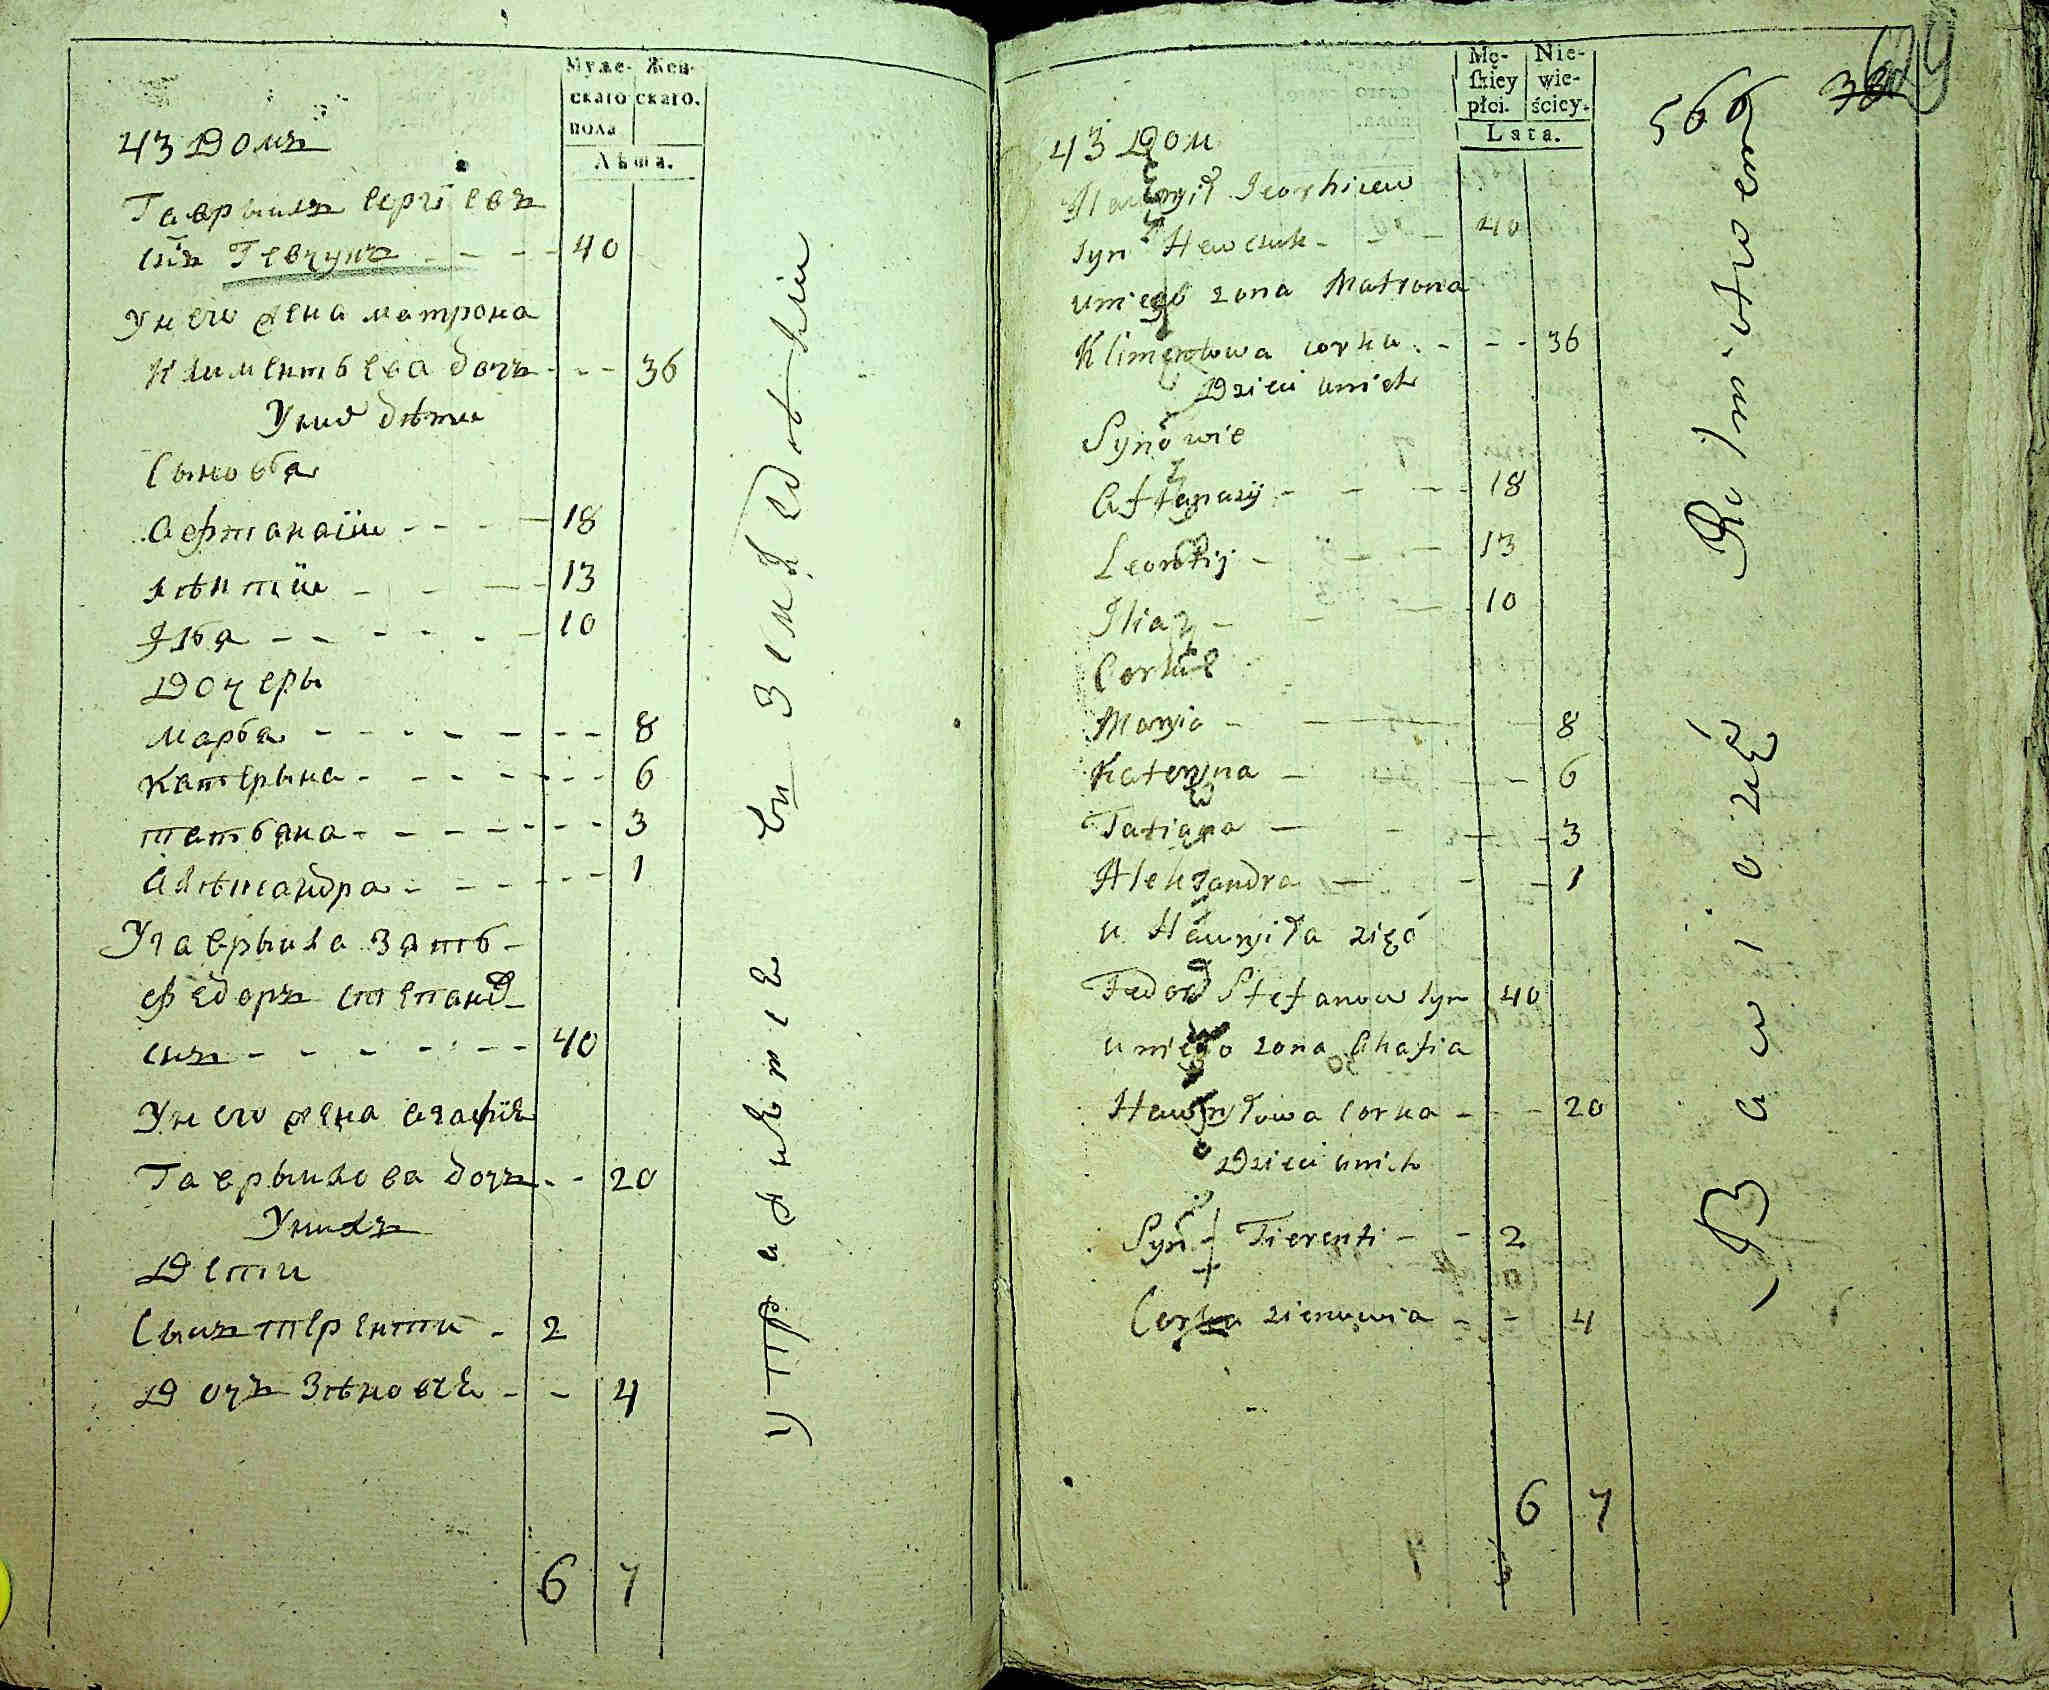 Муже-
скаго
пола
Жен-
скаго.
Лѣта.
43 Домъ
Гаврыилъ Сергіевъ
снъ Гевчукъ - - - - 40
У него жена матрона
Климентьева дочъ - - - 36
У них дѣти
Сыновья
Афтанасіи - - - - 18
лѣнтіи - - - 13
Илья - - - - - - 10
Дочеры
Марья - - - - - - - - 8
Катерына - - - - - - - 6
татьяна - - - - - - - - 3
Алѣксандра - - - - - - 1
У Гаврыила зять
Федоръ степанов
снъ - - - - - - - 40
У него жена агафія
Гаврыилова дочъ - - 20
У нихъ
Дети
Сынъ терентіи - 2
Дочъ Зѣновія - - 4
6 7
Mę-
skiey
płci.
Nie-
wie-
ściey.
Lata.
566
43 Dom
Hawrył Jeorhiiew
syn Hewczuk - - - 40
u niego zona Matrona
Klimentowa corka - - - 36
Dzieci u nich
Synowie
Aftanasij - - - - 18
Leontij - - - 13
Ilia - - - 10
Corki
Maryia - - - - 8
Kateryna - - - 6
Tatiana - - - - 3
Aleksandra - - - 1
u Hawryła zięć
Fedor Stefanow syn 40
u niego zona Ahafia
Hawryłowa corka - - - 20
Dzieci u nich
Syn - Tierenti - - 2
Corka zienowia - - 4
6 7